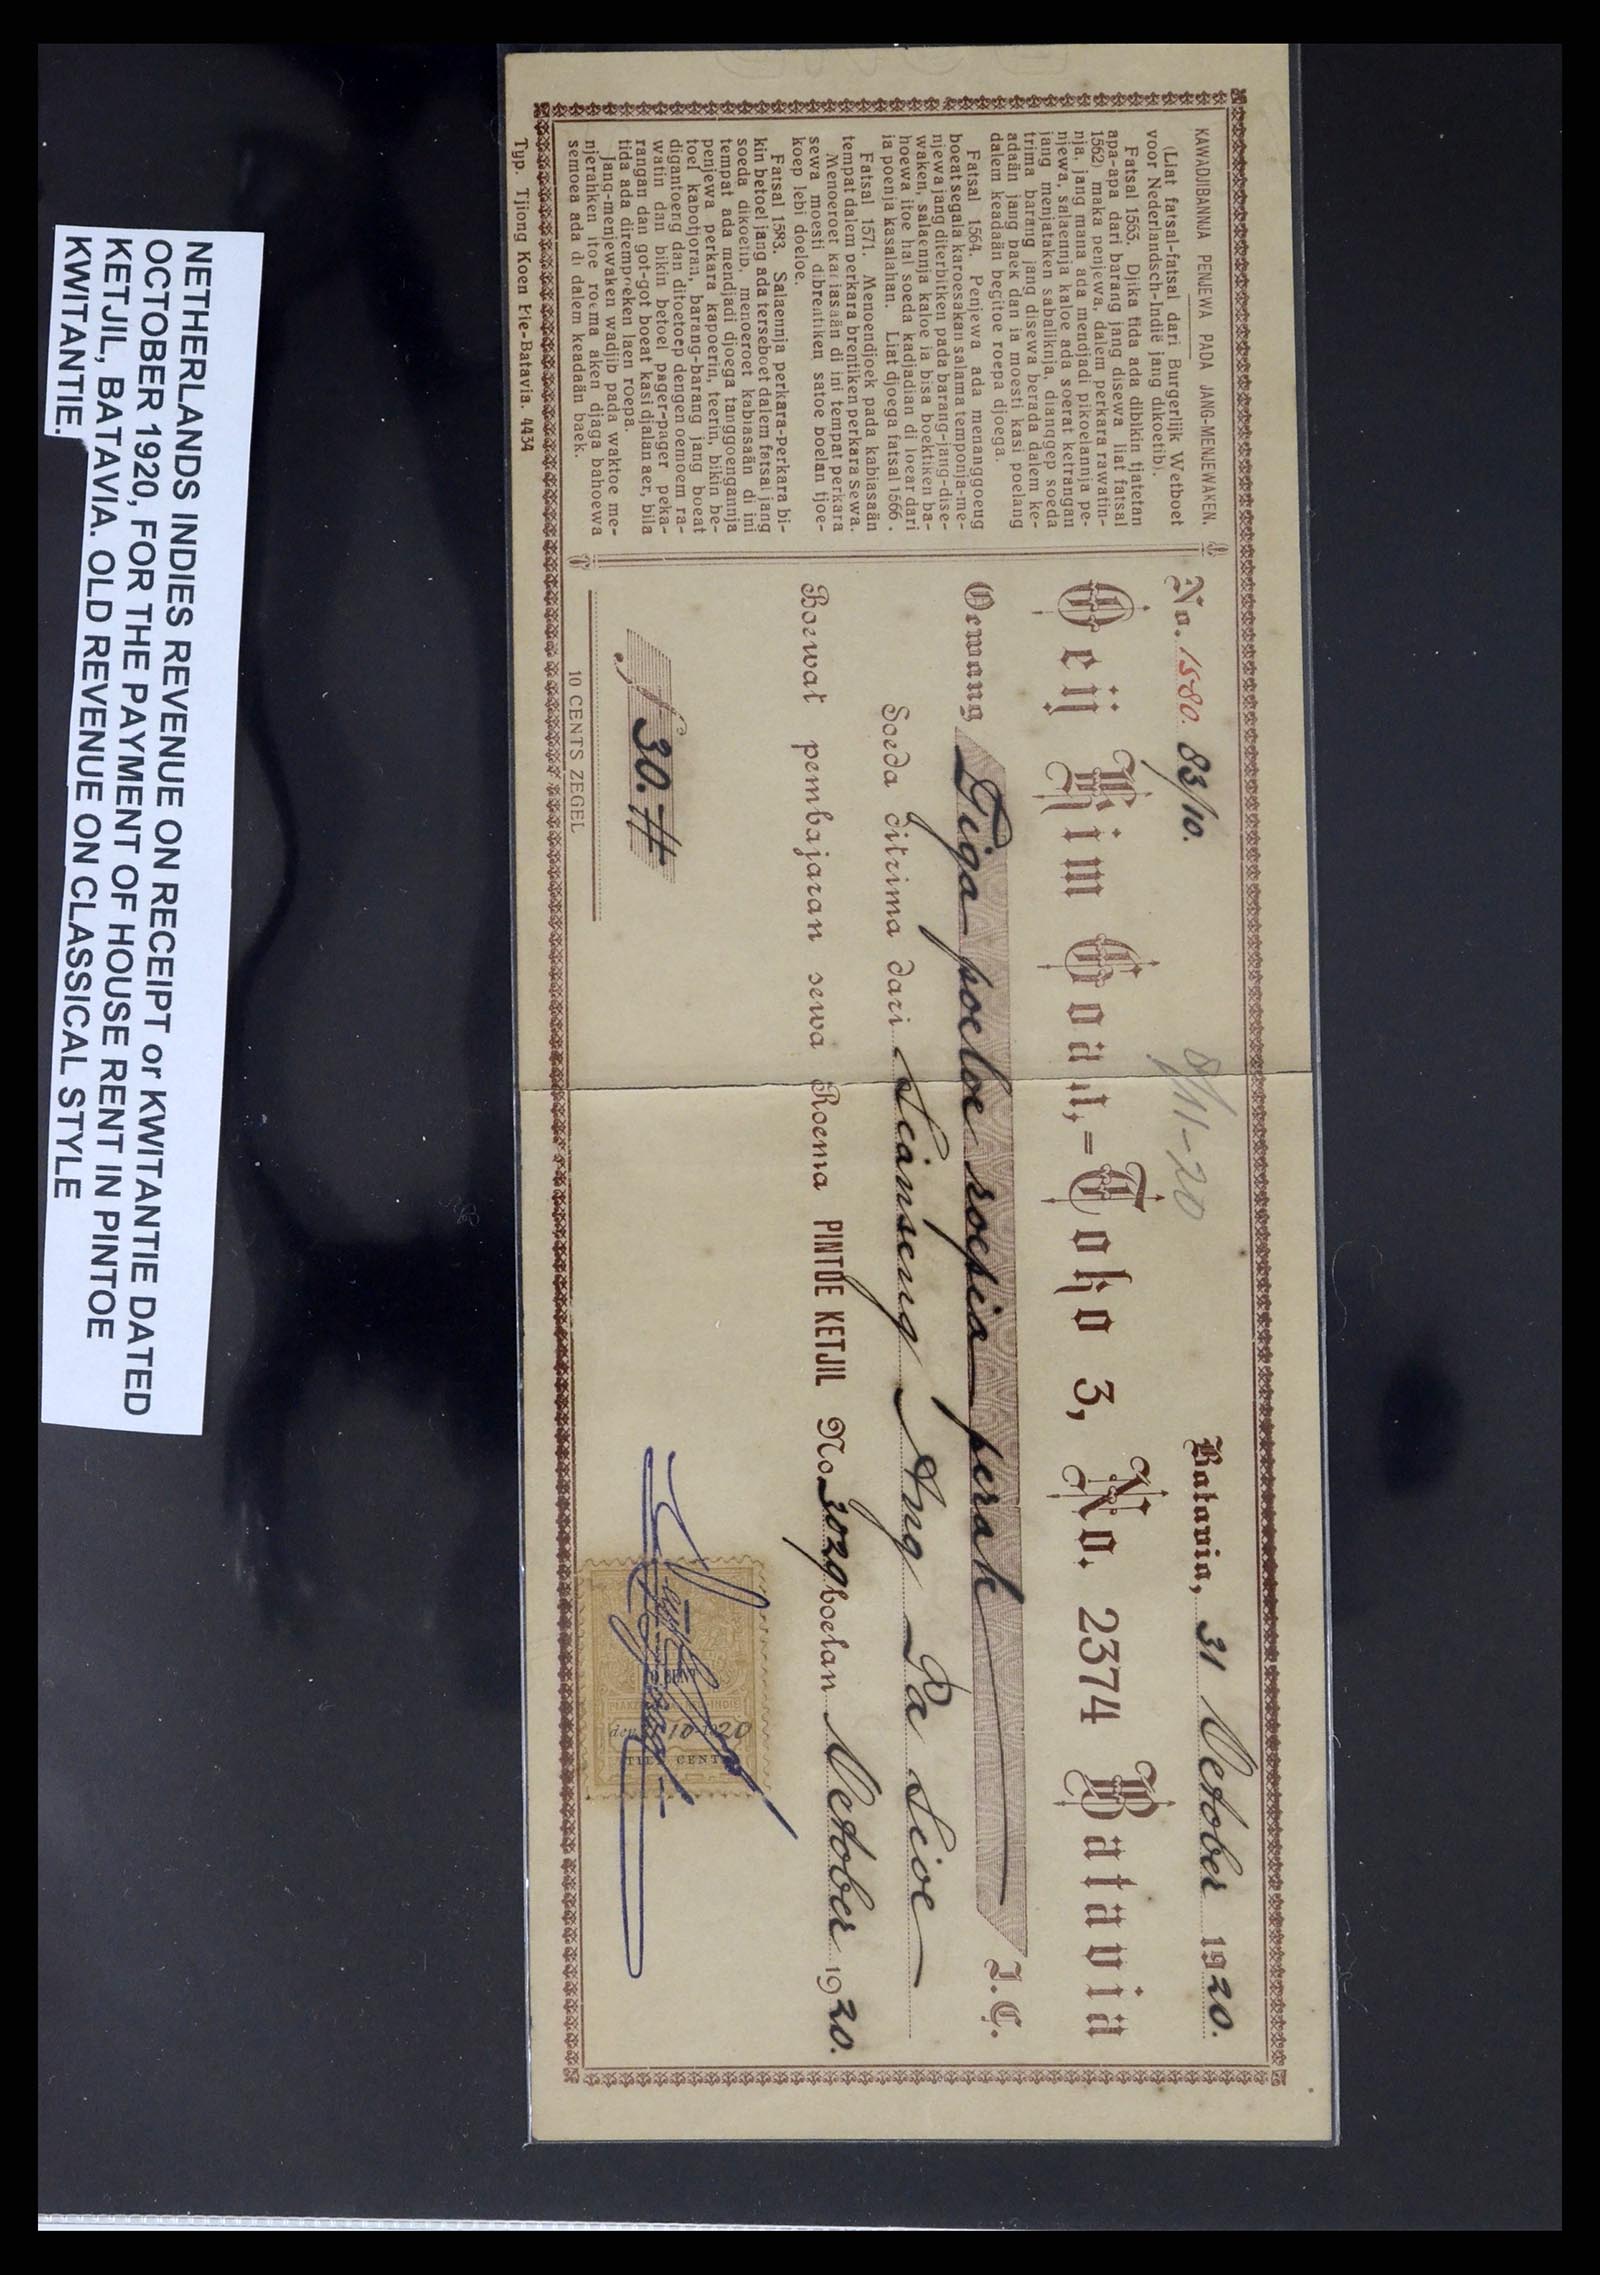 KAWADJIBANNJA PENJEWA PADA JANG-MENJEWAKEN.
(Liat fatsal-fatsal dari Burgerlijk Wetboet
voor Nederlandsch-Indië jang dikoetib).
Fatsal 1553. Djika tida ada dibikin tjatetan
apa-apa dari barang jang disewa liat fatsal
1562) maka penjewa, dalem perkara rawatin-
nja, jang mana ada mendjadi pikoelannja pe-
njewa, salaennja kaloe ada soerat ketrangan
jang menjataken sabaliknja, dianggep soeda
trima barang jang disewa berada dalem ke-
adaän jang baek dan ia moesti kasi poelang
dalem keadaän begitoe roepa djoega.
Fatsal 1564. Penjewa ada menanggoeng
boeat segala karoesakan salama temponja-me-
njewa jang diterbitken pada barang-jang-dise-
waken, salaennja kaloe ia bisa boektiken ba-
hoewa itoe hal soeda kadjadian di loear dari
ia poenja kasalahan. Liat djoega fatsal 1566.
Fatsal 1571. Menoendjoek pada kabiasaän
tempat dalem perkara brentiken perkara sewa.
Menoeroet kabiasaän di ini tempat perkara
sewa moesti dibrentiken satoe boelan tjoe-
koep lebi doeloe.
Fatsal 1583. Salaennja perkara-perkara bi-
kin betoel jang ada terseboet dalem fatsal jang
soeda dikoetib, menoeroet kabiasaän di ini
tempat ada mendjadi djoega tanggoengannja
penjewa perkara kapoerin, teerin, bikin be-
toel kabotjoran, barang-barang jang boeat
digantoeng dan ditoetoep dengen oemoem ra-
watin dan bikin betoel pager-pager peka-
rangan dan got-got boeat kasi djalan aer, bila
tida ada dirempoeken laen roepa.
Jang-menjewaken wadjib pada waktoe me-
njerahken itoe roema aken djaga bahoewa
semoea ada di dalem keadaän baek.
Typ. Tjiong Koen Bie-Batavia. 4434
No. 1580. 83/10.
8/11-20
Batavia, 31 October 1920.
Oeij Kim Goan,=Toko 3, No. 2374 Batavia
Oewang Tiga poeloe roepia perak I.C.
Soeda ditrima dari Lianseng Ang Pa Lioe
Boewat pembajaran sewa Roema PINTOE KETJIL No 3029 boelan October 1920.
f 30.
10 CENTS ZEGEL
10-1920
TIEN CENT
NETHERLANDS INDIES REVENUE ON RECEIPT or KWITANTIE DATED
OCTOBER 1920, FOR THE PAYMENT OF HOUSE RENT IN PINTOE
KETJIL, BATAVIA. OLD REVENUE ON CLASSICAL STYLE
KWITANTIE.